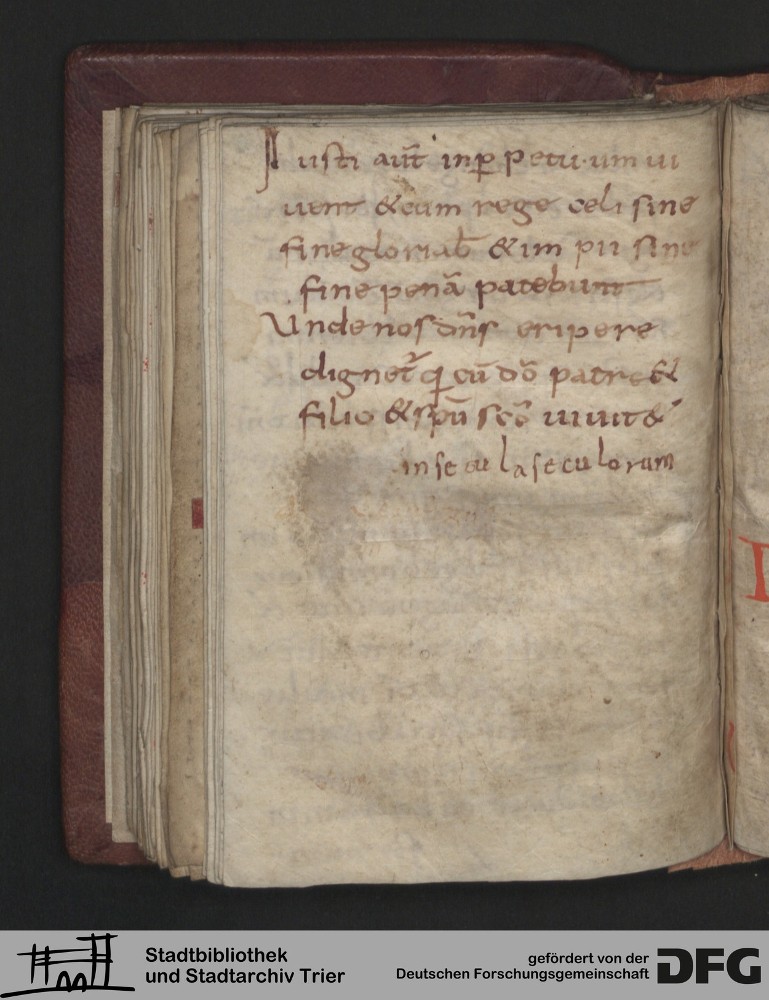 Iusti aut̄ inp̱ petu·um ui
uent & cum rege celi sine
fine gloriab̄ & im pii sine
fine penā patebunt
Unde nos dn̄s eripere
dignet̄ q̱ cū dō patre &
filio & spū scō uiuit &
in secula seculorum
Stadtbibliothek
und Stadtarchiv Trier
gefördert von der
Deutschen Forschungsgemeinschaft
DFG